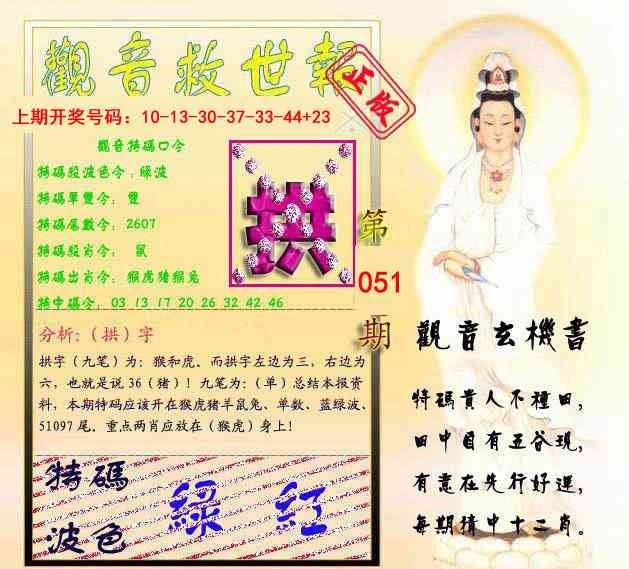 觀音救世報
正版
上期开奖号码：10-13-30-37-33-44+23
觀音特碼口令
特碼殺波色令：綠波
特碼單雙令：雙
特碼尾數令：2607
特碼殺肖令： 鼠
特碼出肖令：猴虎猪猴兔
特中碼令：03 13 17 20 26 32 42 46
拱
第
051
期
分析:（拱）字
拱字（九笔）为：猴和虎。而拱字左边为三，右边为
六，也就是说 36（猪）！九笔为:（单）总结本报资
料，本期特码应该开在猴虎猪羊鼠兔、单数、蓝绿波、
51097 尾。重点两肖应放在（猴虎）身上！
特碼
波色
綠 紅
觀音玄機書
特碼貴人不種田，
田中目有五谷現，
有意在先行好運，
每期猜中十二肖。